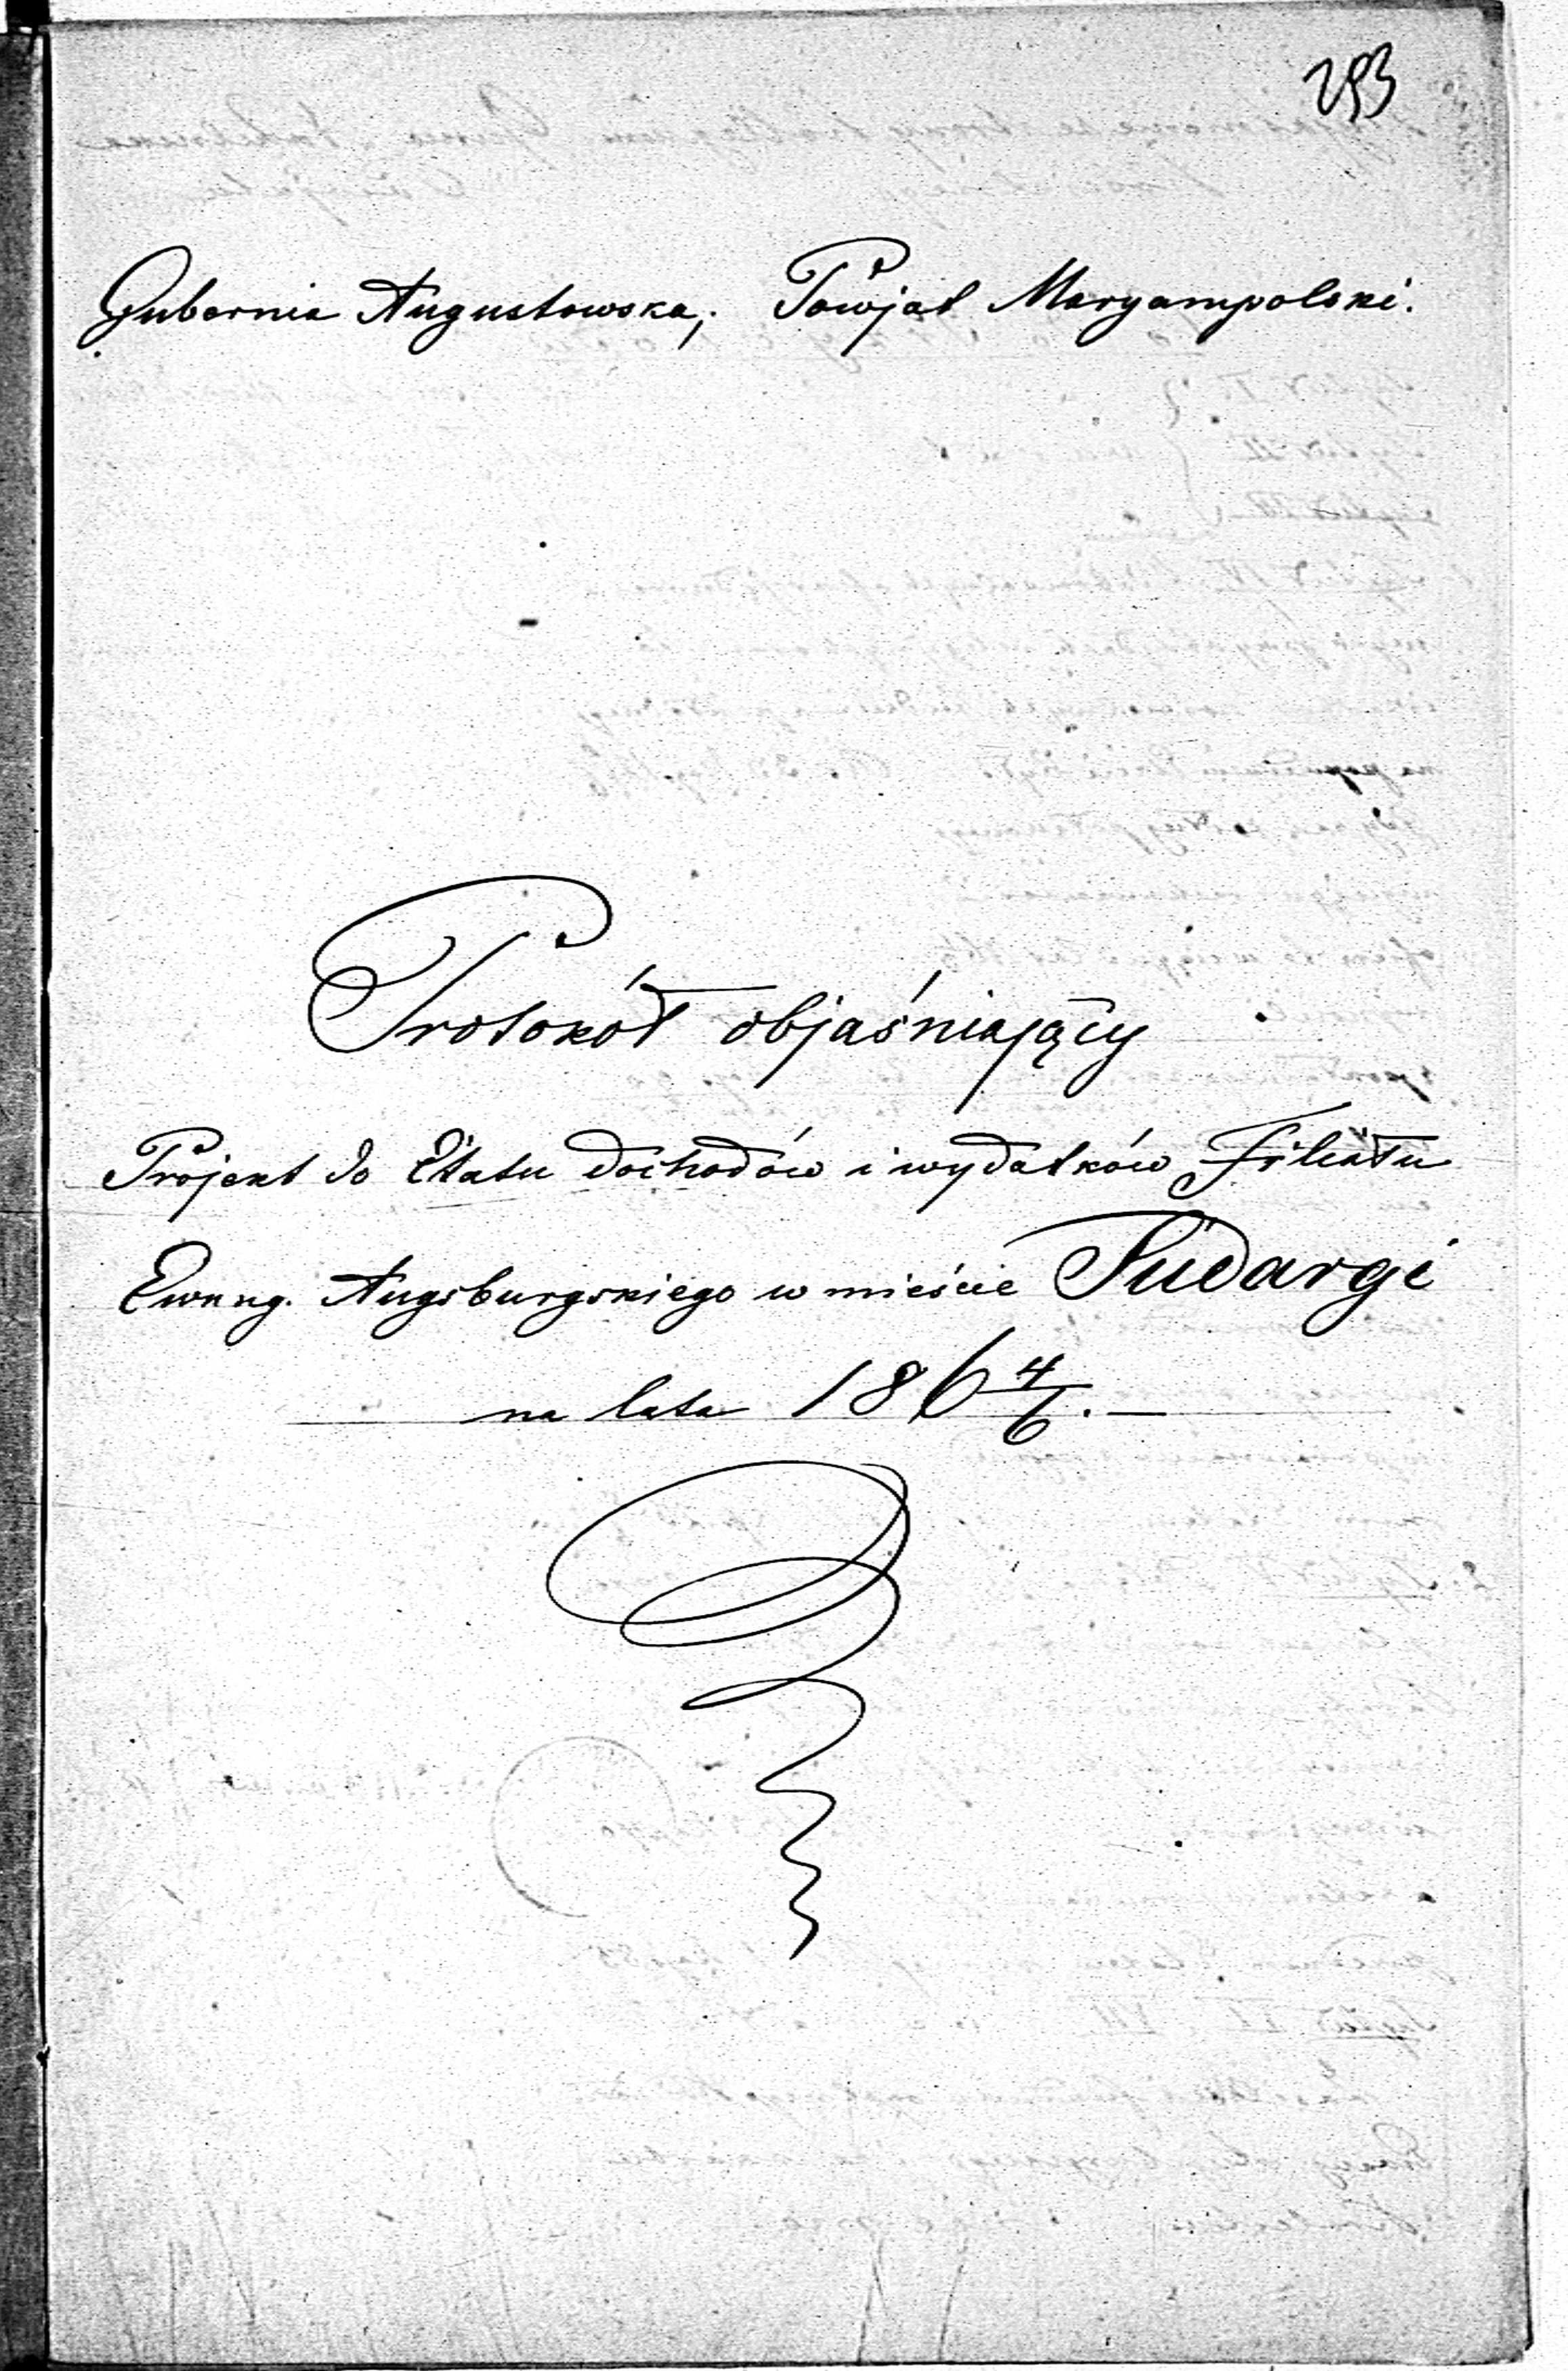 293
Gubernia Augustowska; Powjat Maryampolski.
Protokół objaśniający
Projekt do Etatu dochodów i wydatków Filiału
Ewang. Augsburgskiego w mieście Sudargi
na lata 186 4/6. —